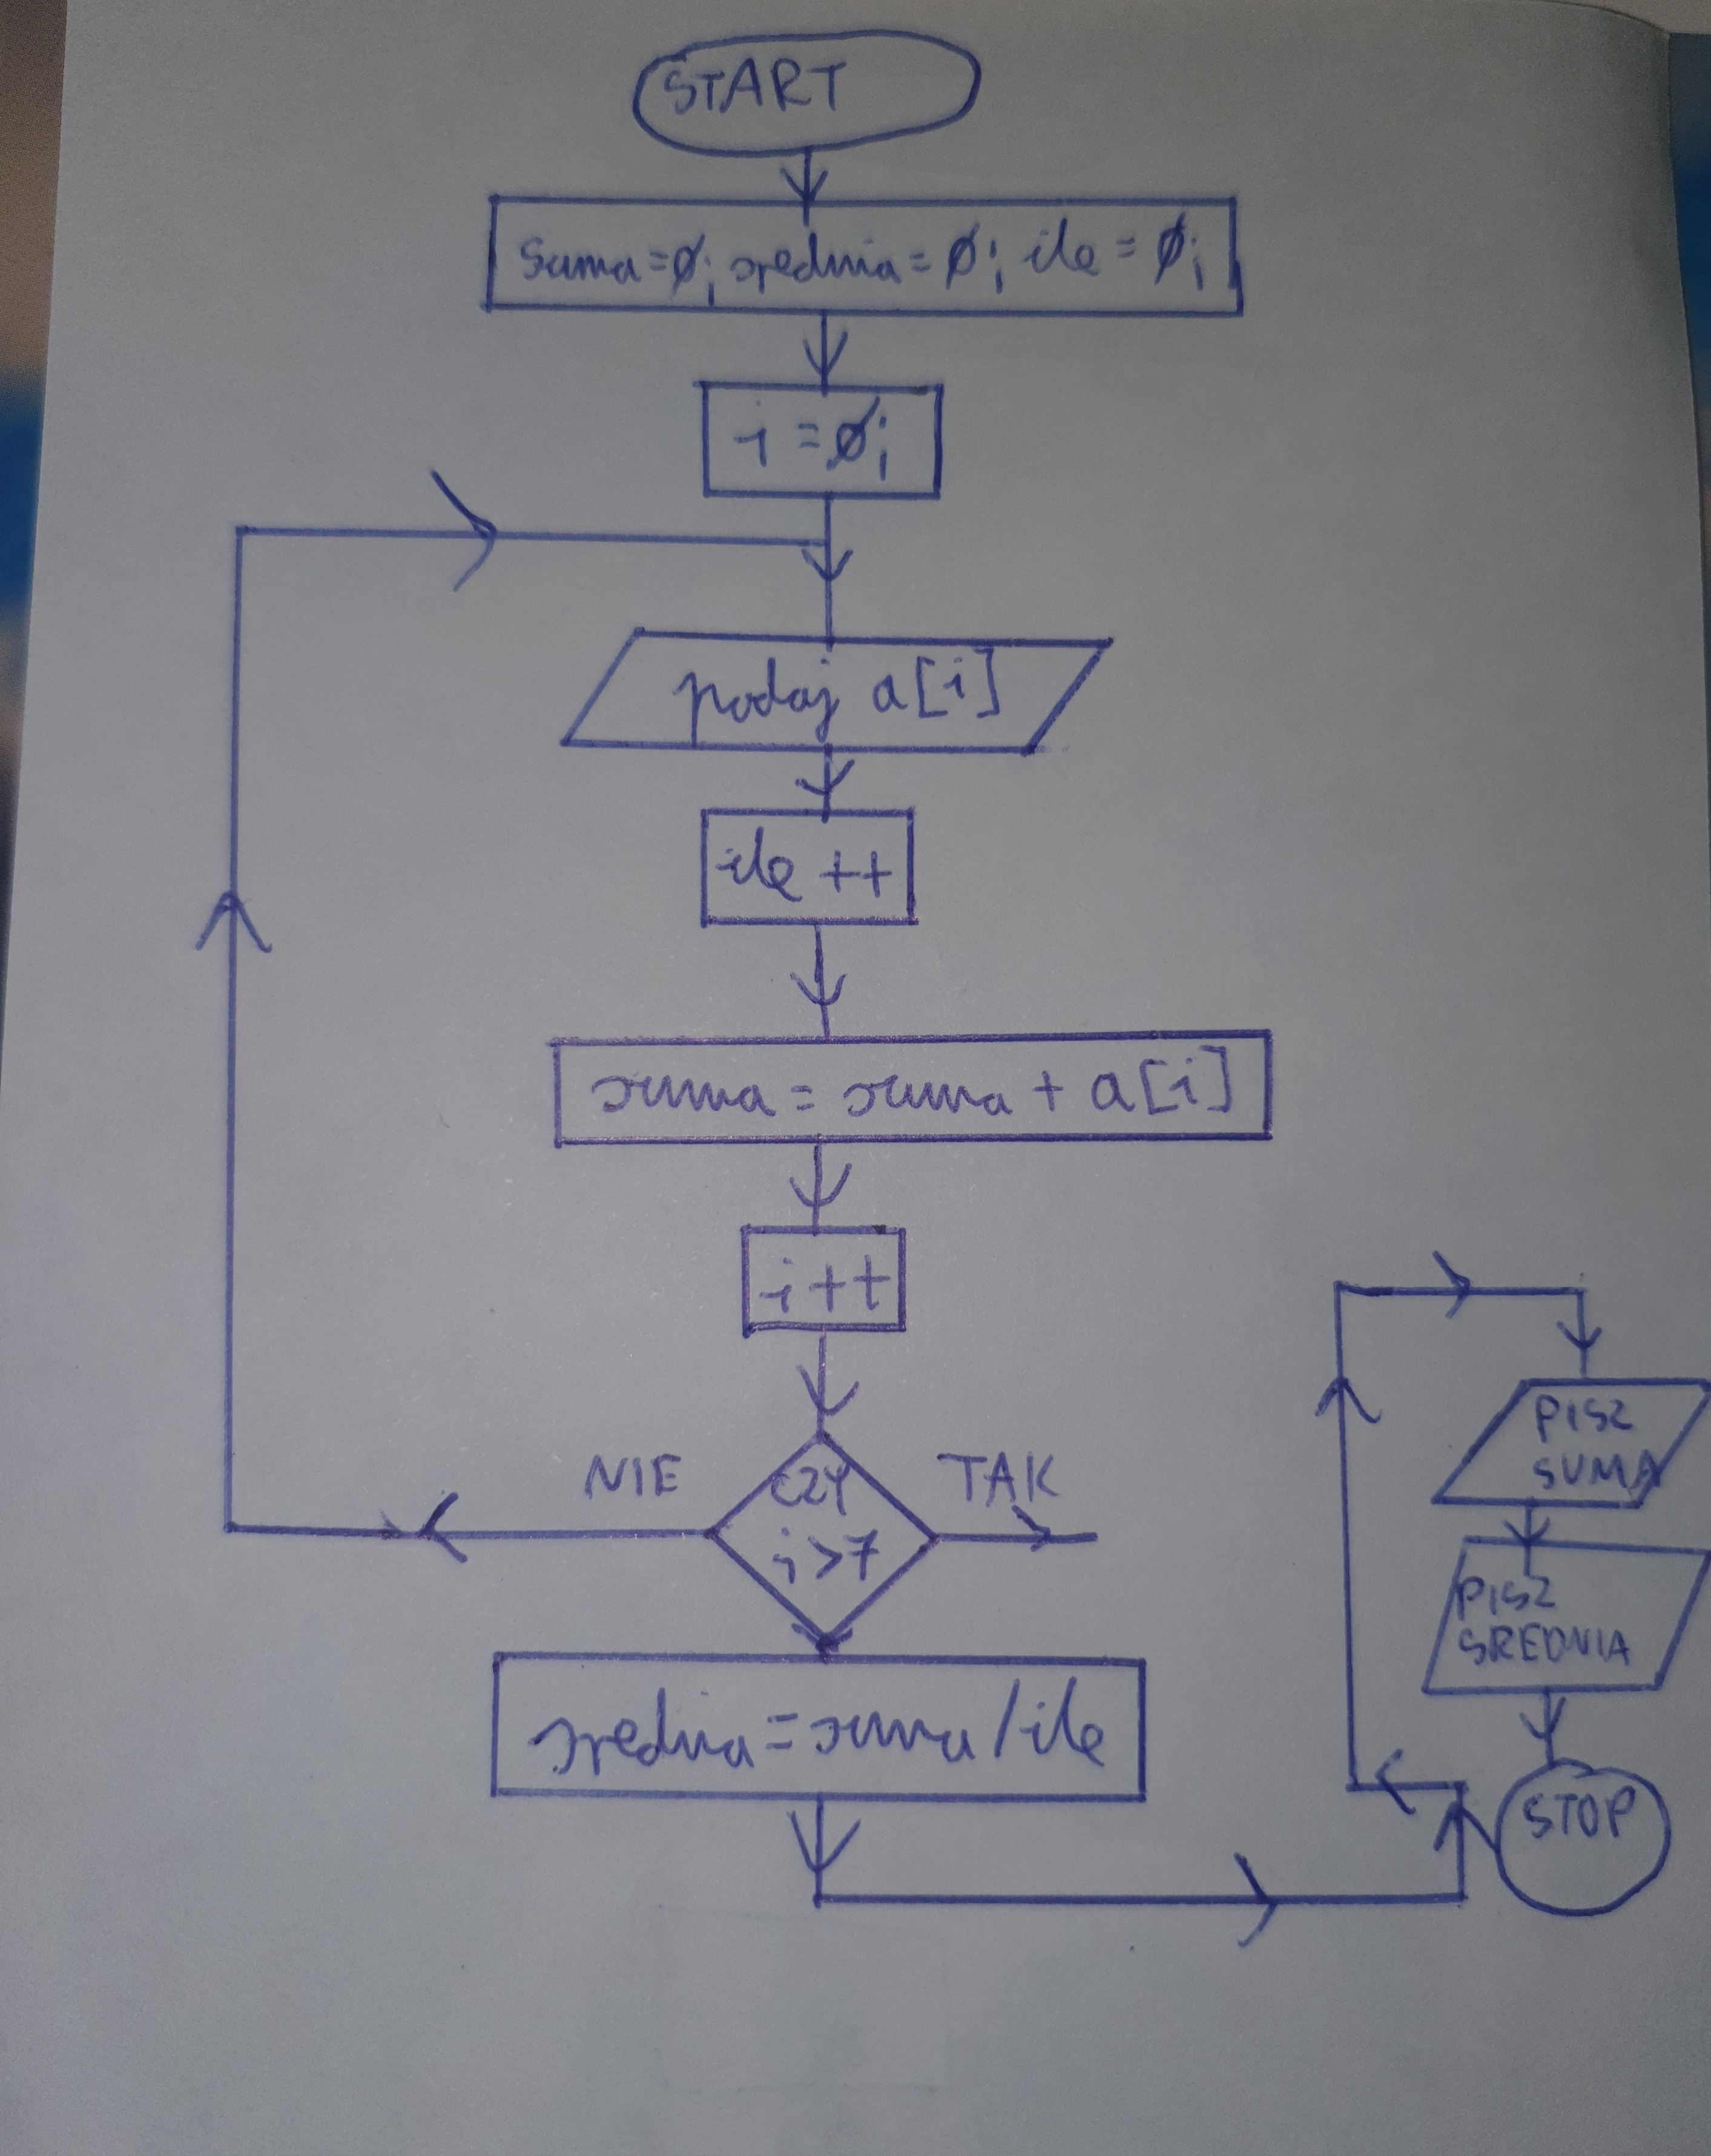 START
Suma=0; srednia=0; ile=0;
i=0;
podaj a[i]
ile ++
suma = suma + a[i]
i++
NIE
czy
i>7
TAK
srednia = suma / ile
PISZ
SUMA
PISZ
SREDNIA
STOP